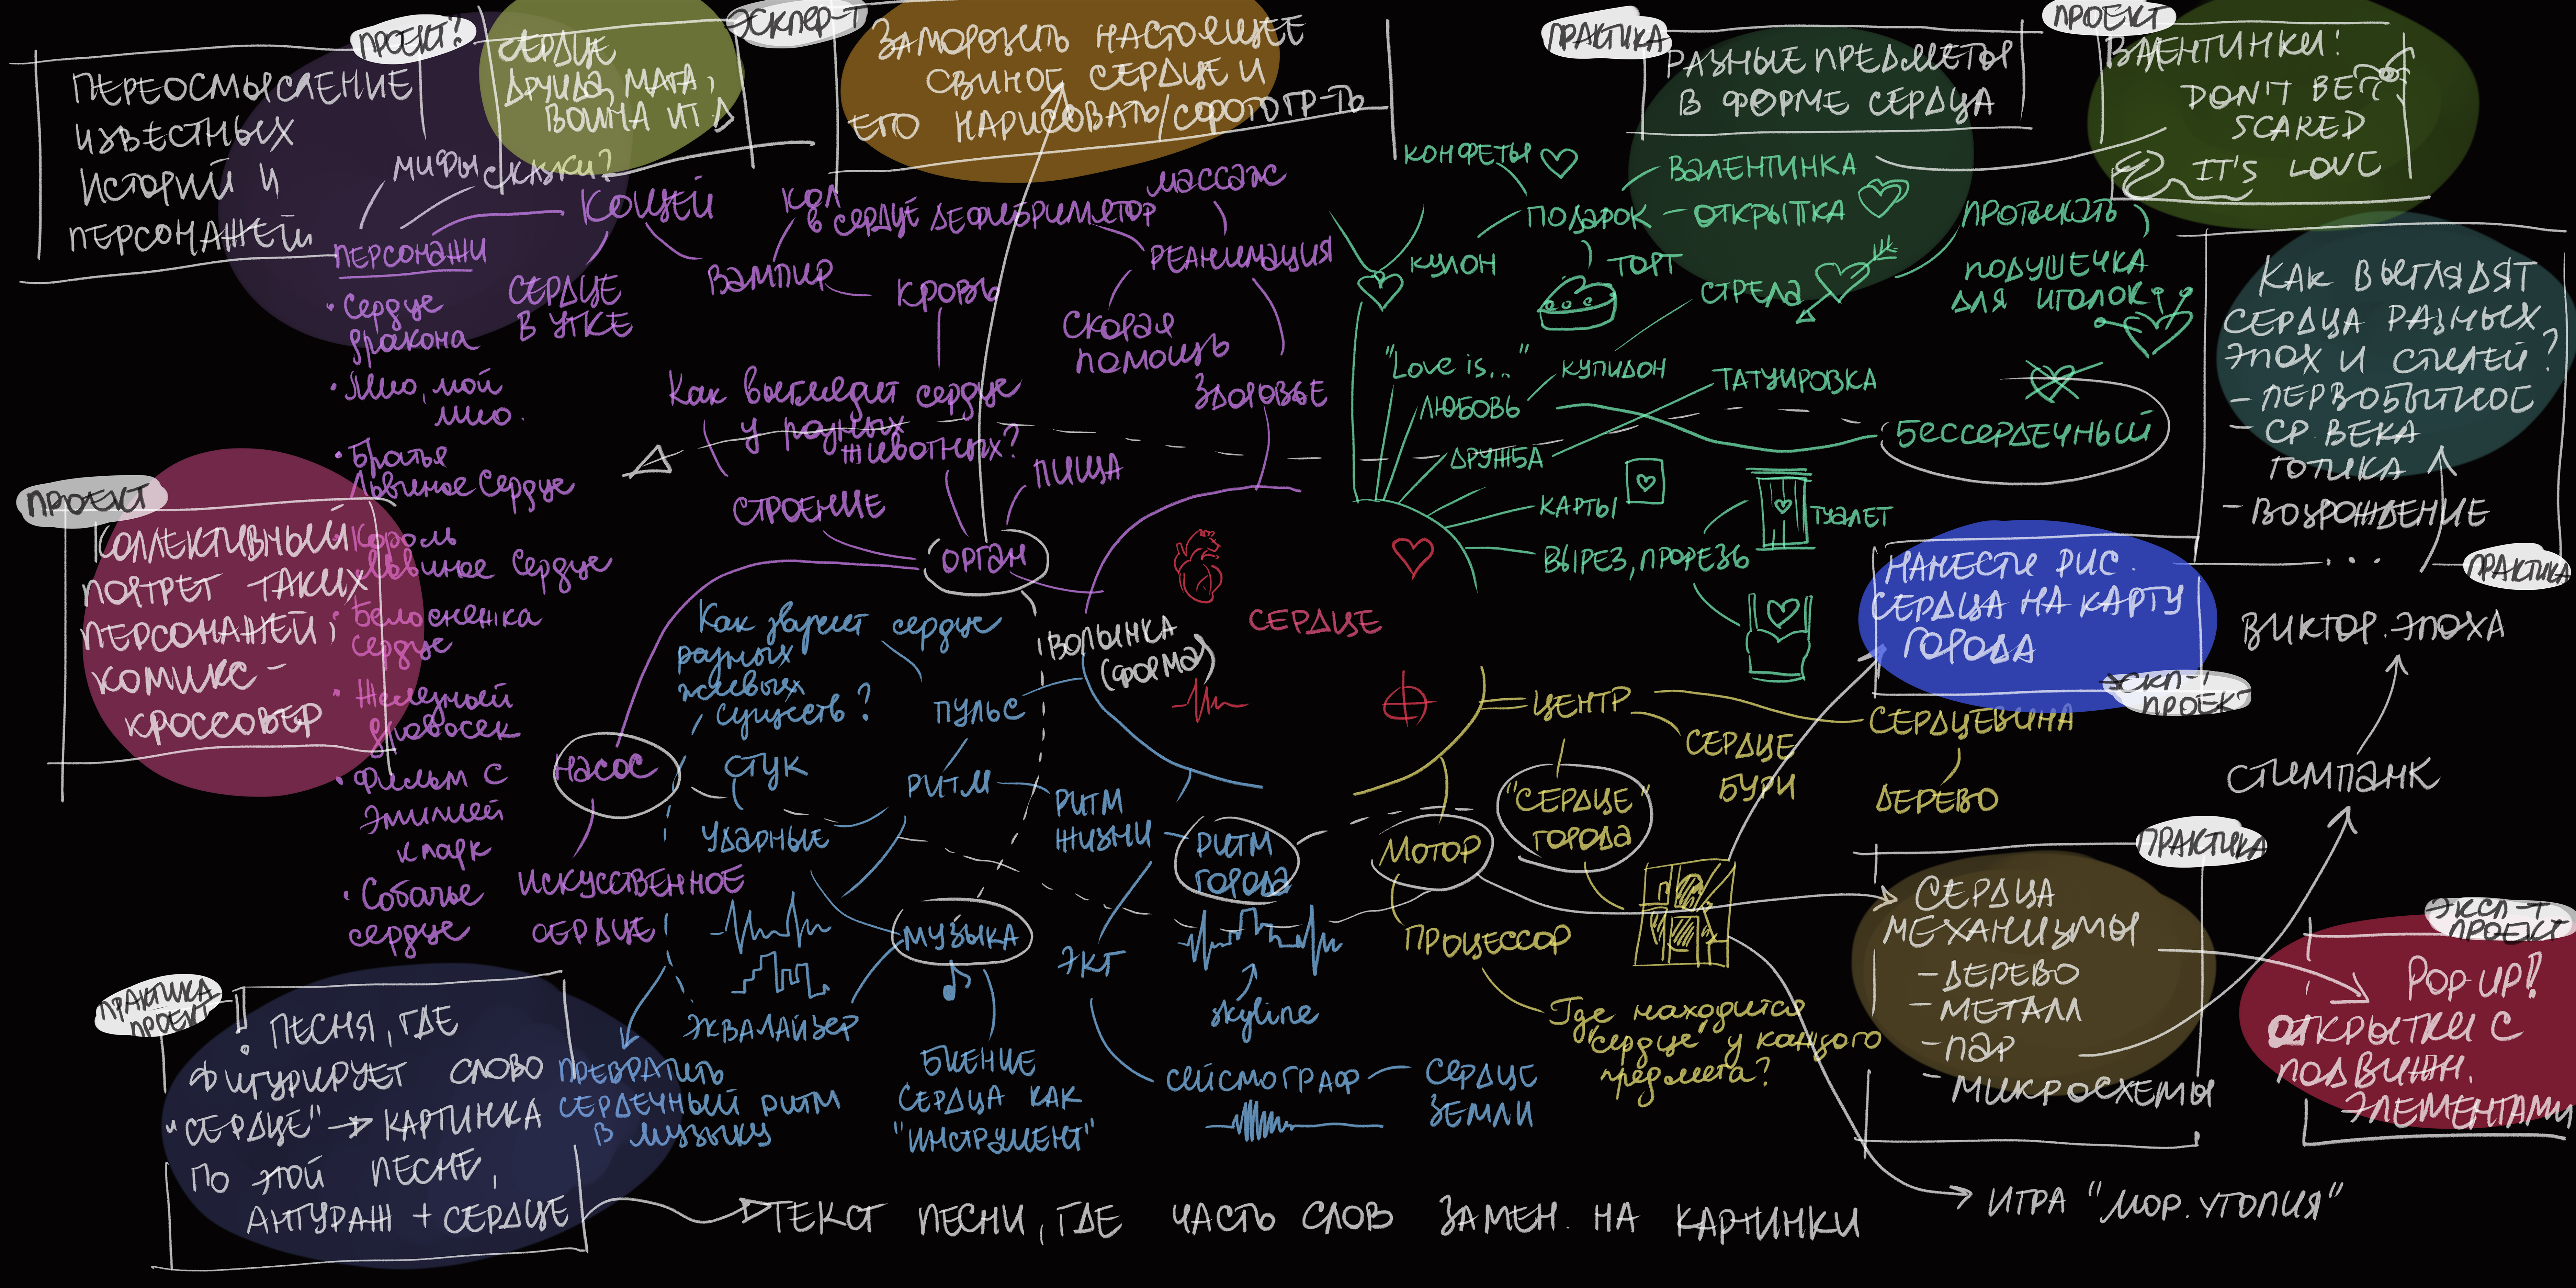 ПРОЕКТ?
ПЕРЕОСМЫСЛЕНИЕ
ИЗВЕСТНЫХ
ИСТОРИЙ И
ПЕРСОНАЖЕЙ
СЕРДЦЕ
ДРУИДА, МАГА,
ВОИНА И Т.Д
ЭКСПЕР-Т
ЗАМОРОЗИТЬ НАСТОЯЩЕЕ
СВИНОЕ СЕРДЦЕ И
ЕГО НАРИСОВАТЬ/СФОТОГР-ТЬ
ПРАКТИКА
РАЗНЫЕ ПРЕДМЕТЫ
В ФОРМЕ СЕРДЦА
ПРОЕКТ
ВАЛЕНТИНКИ!
DON'T BE
SCARED
IT'S LOVE
МИФЫ
СКАЗКИ?
ПЕРСОНАЖИ
КОЩЕЙ
СЕРДЦЕ
В УТКЕ
ВАМПИР
КОЛ
В СЕРДЦЕ
КРОВЬ
ДЕФИБРИЛЛЯТОР
МАССАЖ
РЕАНИМАЦИЯ
СКОРАЯ
ПОМОЩЬ
ЗДОРОВЬЕ
• Сердце
дракона
• Мио, мой
Мио.
• Братья
Львиное Сердце
• Король
Львиное Сердце
• Белоснежка
сердце
• Железный
дровосек
• Фильм с
Эмилией
Кларк
• Собачье
сердце
Как выглядит сердце
у разных
животных?
СТРОЕНИЕ
ПИЩА
ОРГАН
НАСОС
ИСКУССТВЕННОЕ
СЕРДЦЕ
ПРОЕКТ
КОЛЛЕКТИВНЫЙ
ПОРТРЕТ ТАКИХ
ПЕРСОНАЖЕЙ,
КОМИКС-
КРОССОВЕР
КОНФЕТЫ
ПОДАРОК
ВАЛЕНТИНКА
ОТКРЫТКА
КУЛОН
ТОРТ
СТРЕЛА
ПРОТЫКАТЬ
ПОДУШЕЧКА
ДЛЯ ИГОЛОК
"Love is..."
КУПИДОН
ЛЮБОВЬ
ТАТУИРОВКА
БЕССЕРДЕЧНЫЙ
ДРУЖБА
КАРТЫ
ТУАЛЕТ
ВЫРЕЗ, ПРОРЕЗЬ
КАК ВЫГЛЯДЯТ
СЕРДЦА РАЗНЫХ
ЭПОХ И СТИЛЕЙ?
- ПЕРВОБЫТНОЕ
- СР. ВЕКА
ГОТИКА
- ВОЗРОЖДЕНИЕ
...
ПРАКТИКА
ВИКТОР. ЭПОХА
СТИМПАНК
СЕРДЦЕ
ВОЛЫНКА
(ФОРМА)
Как звучит сердце
разных
живых
существ?
ПУЛЬС
СТУК
РИТМ
УДАРНЫЕ
РИТМ
ЖИЗНИ
РИТМ
ГОРОДА
МУЗЫКА
ЭКГ
skyline
ЭКВАЛАЙЗЕР
ПРЕВРАТИТЬ
СЕРДЕЧНЫЙ РИТМ
В МУЗЫКУ
БИЕНИЕ
СЕРДЦА КАК
"ИНСТРУМЕНТ"
СЕЙСМОГРАФ
СЕРДЦЕ
ЗЕМЛИ
ЦЕНТР
СЕРДЦЕ
БУРИ
СЕРДЦЕВИНА
ДЕРЕВО
"СЕРДЦЕ"
ГОРОДА
МОТОР
ПРОЦЕССОР
Где находится
"сердце" у каждого
предмета?
НАНЕСТИ РИС.
СЕРДЦА НА КАРТУ
ГОРОДА
ЭКСП-Т
ПРОЕКТ
ПРАКТИКА
СЕРДЦА
МЕХАНИЗМЫ
- ДЕРЕВО
- МЕТАЛЛ
- ПАР
- МИКРОСХЕМЫ
ЭКСП-Т
ПРОЕКТ
POP-UP!
ОТКРЫТКИ С
ПОДВИЖН.
ЭЛЕМЕНТАМИ
ПРАКТИКА
ПРОЕКТ
ПЕСНЯ, ГДЕ
ФИГУРИРУЕТ СЛОВО
"СЕРДЦЕ" → КАРТИНКА
ПО ЭТОЙ ПЕСНЕ,
АНТУРАЖ + СЕРДЦЕ
ТЕКСТ ПЕСНИ, ГДЕ ЧАСТЬ СЛОВ ЗАМЕН. НА КАРТИНКИ
ИГРА "МОР. УТОПИЯ"